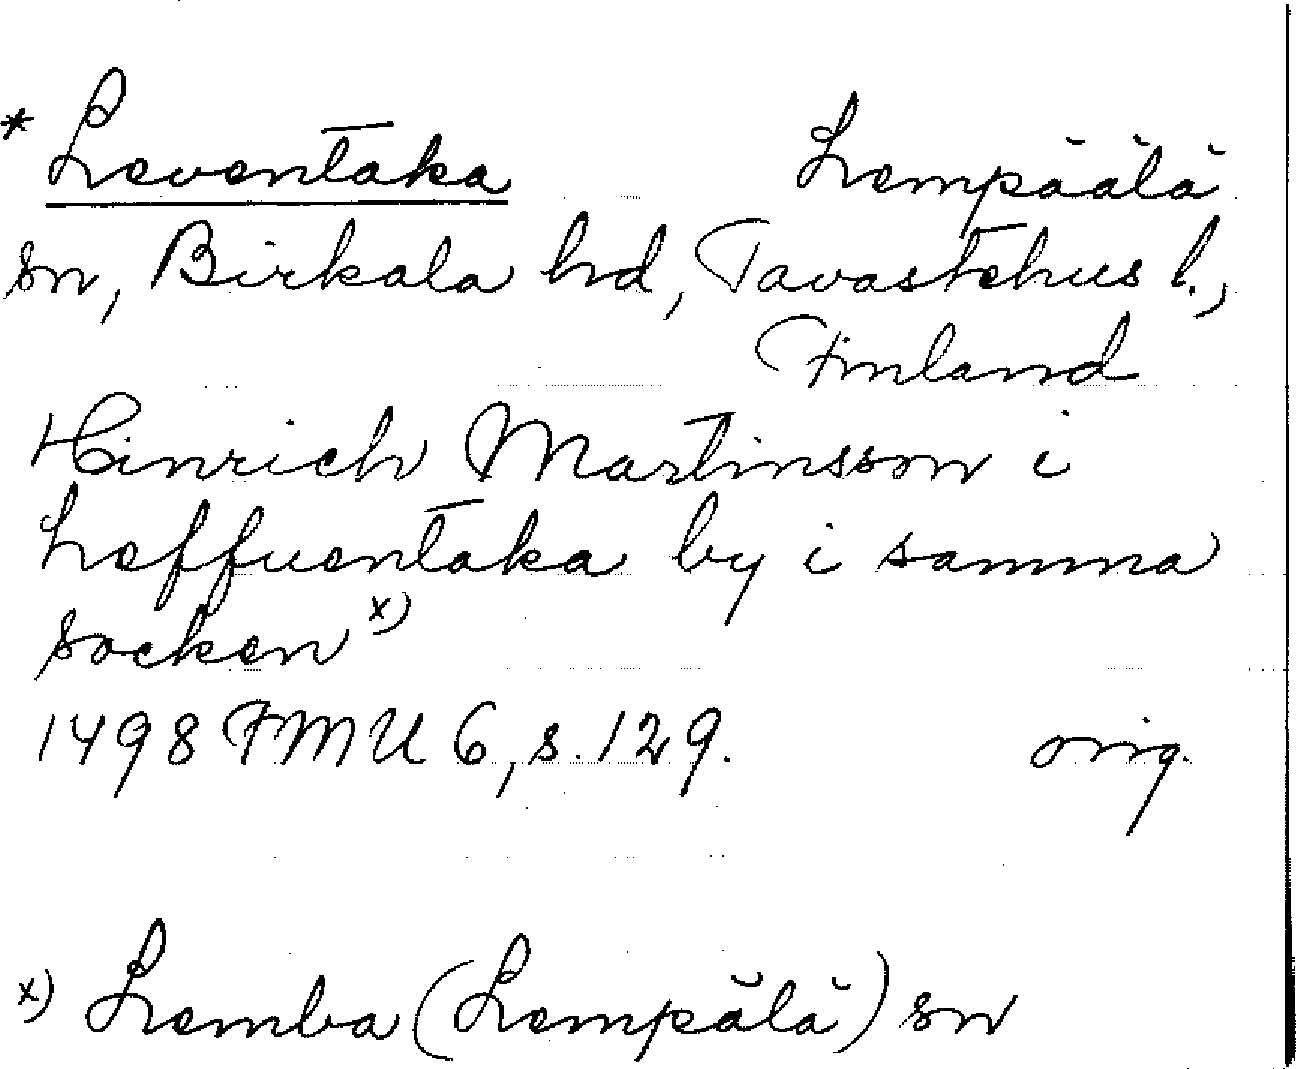 * Leventaka Lempäälä
sn, Birkala hd, Tavastehus l.,
Finland
Hinrich Martinsson i
Leffuentaka by i samma
socken x)
1498 FMU 6, s. 129. orig.
x) Lemba (Lempälä) sn